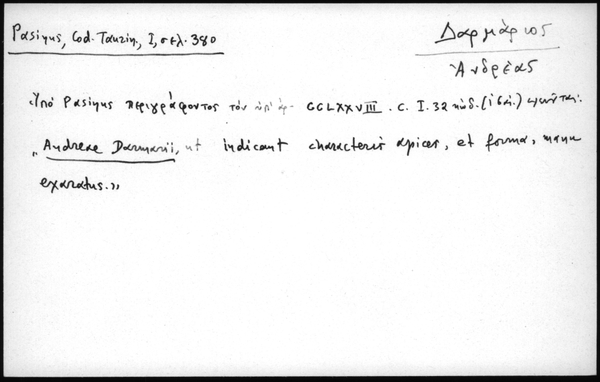 Pasinus, Cod. Taurin., I, σελ. 380
Δαρμάριος
Ἀνδρέας
Ὑπὸ Pasinus περιγράφοντος τὸν ὑπ' ἀρ. CCLXXVIII . C. I. 32 κώδ.
„Andreae Darmarii, ut indicant characteris apices, et forma, manu
exaratus.”